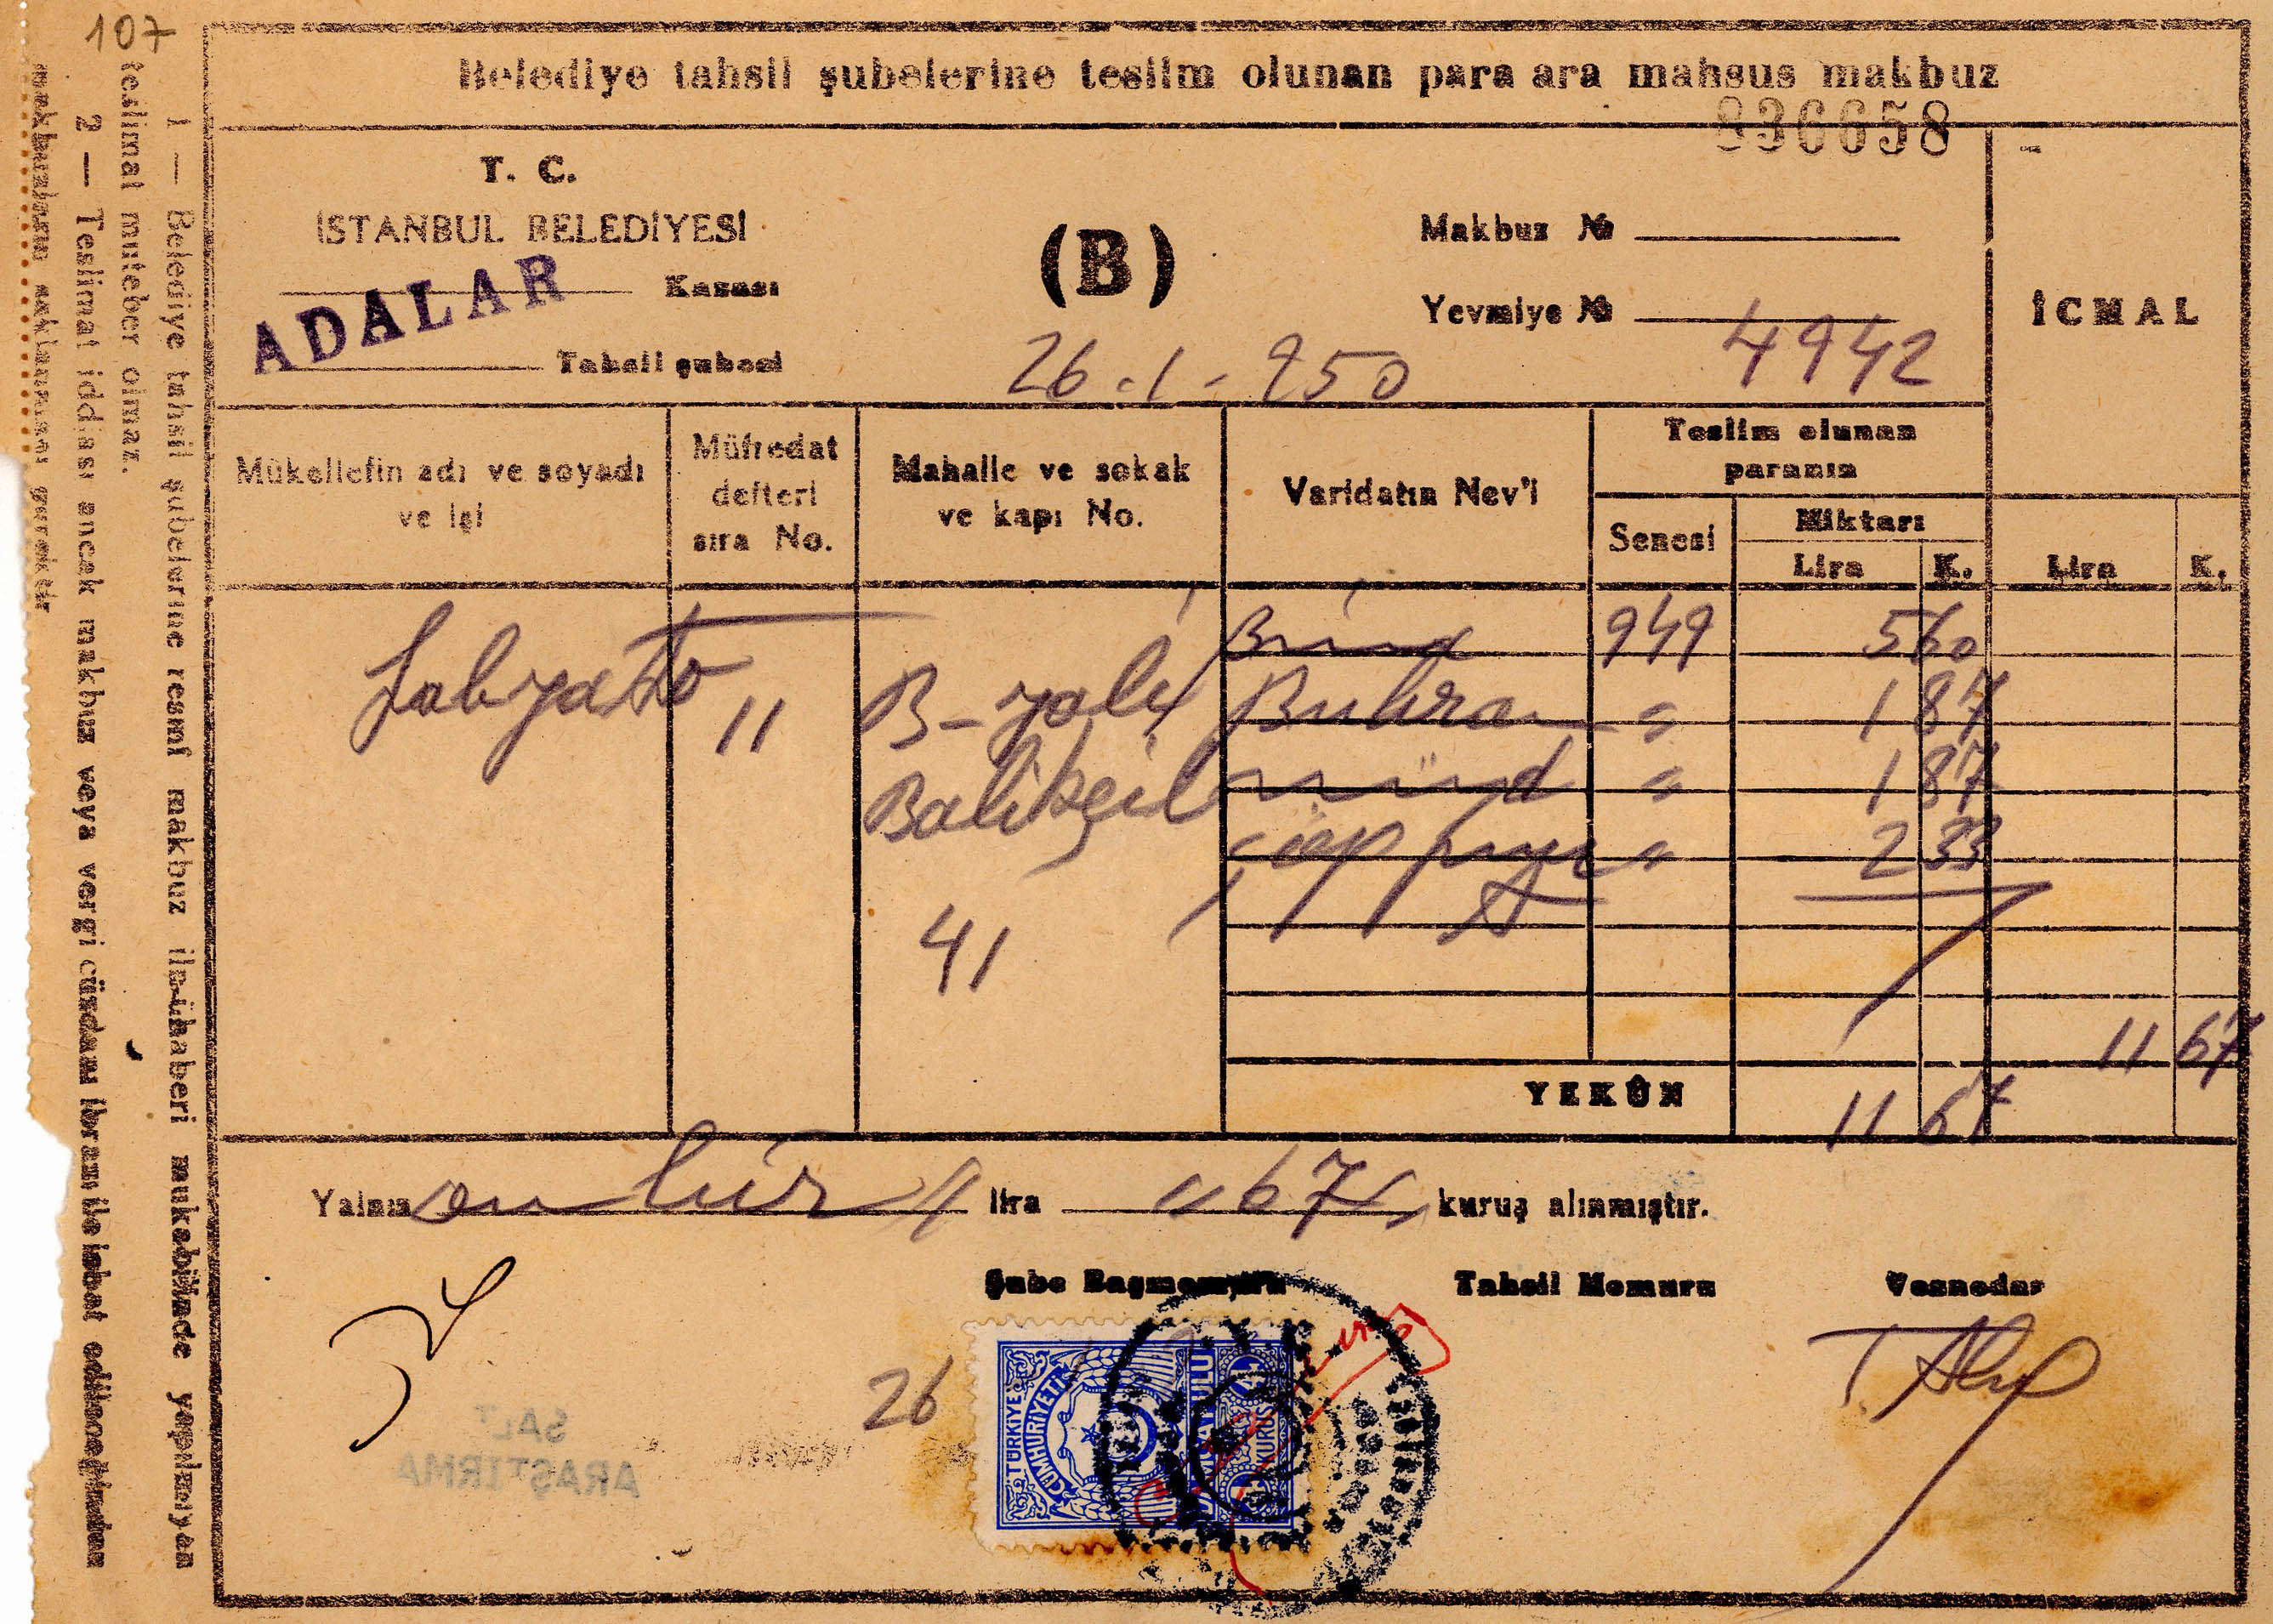 107
Belediye tahsil şubelerine teslim olunan para ara mahsus makbuz
836658
T. C.
İSTANBUL BELEDİYESİ
Kazası
ADALAR
Tahsil şubesi
(B)
26-1-950
Makbuz №
Yevmiye № 4942
İCMAL
Mükellefin adı ve soyadı ve işi
Müfredat defteri sıra No.
Mahalle ve sokak ve kapı No.
Varidatın Nev'i
Teslim olunan paranın
Senesi
Miktarı
Lira K.
Lira K.
Bina 949 5 60
11 B-yalı Buhran " 1 87
Balıkçıl " 1 87
çöp " 2 33
41
11 67
YEKÛN 11 67
Yalnız on bir lira 67 kuruş alınmıştır.
Şube Başmemuru Tahsil Memuru Veznedar
26
TÜRKİYE CUMHURİYETİ
KURUŞ
SALT
ARAŞTIRMA
1 — Belediye tahsil şubelerine resmî makbuz ilmühaberi mukabilinde yapılmıyan
teslimat muteber olmaz.
2 — Teslimat iddiası ancak makbuz veya vergi cüzdanı ibrazı ile isbat edileceğinden
makbuzların saklanması gerektir